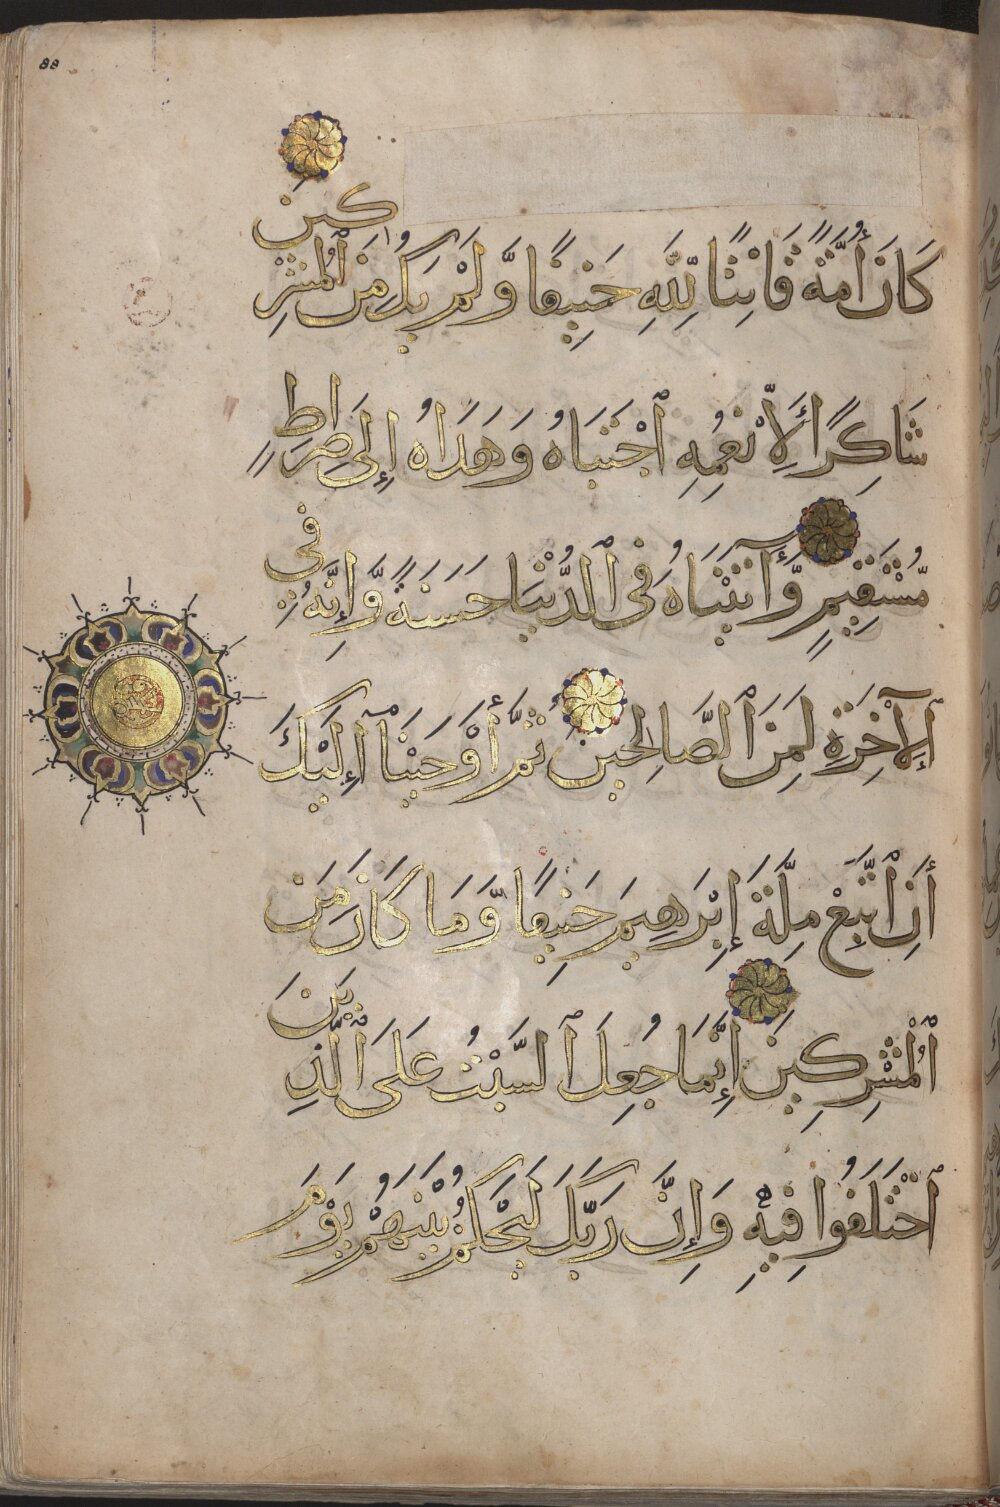 88
كَانَ أُمَّةً قَانِتًا لِّلَّهِ حَنِيفًا وَّلَمْ يَكُ مِنَ ٱلْمُشْرِكِينَ
شَاكِرًا لِّأَنْعُمِهِ ٱجْتَبَاهُ وَهَدَاهُ إِلَى صِرَاطٍ
مُّسْتَقِيمٍ وَّآتَيْنَاهُ فِي ٱلدُّنْيَا حَسَنَةً وَّإِنَّهُ فِي
ٱلْآخِرَةِ لَمِنَ ٱلصَّالِحِينَ ثُمَّ أَوْحَيْنَآ إِلَيْكَ
أَنِ ٱتَّبِعْ مِلَّةَ إِبْرَهِيمَ حَنِيفًا وَّمَا كَانَ مِنَ
ٱلْمُشْرِكِينَ إِنَّمَا جُعِلَ ٱلسَّبْتُ عَلَى ٱلَّذِينَ
ٱخْتَلَفُوا فِيهِ وَإِنَّ رَبَّكَ لَيَحْكُمُ بَيْنَهُمْ يَوْمَ